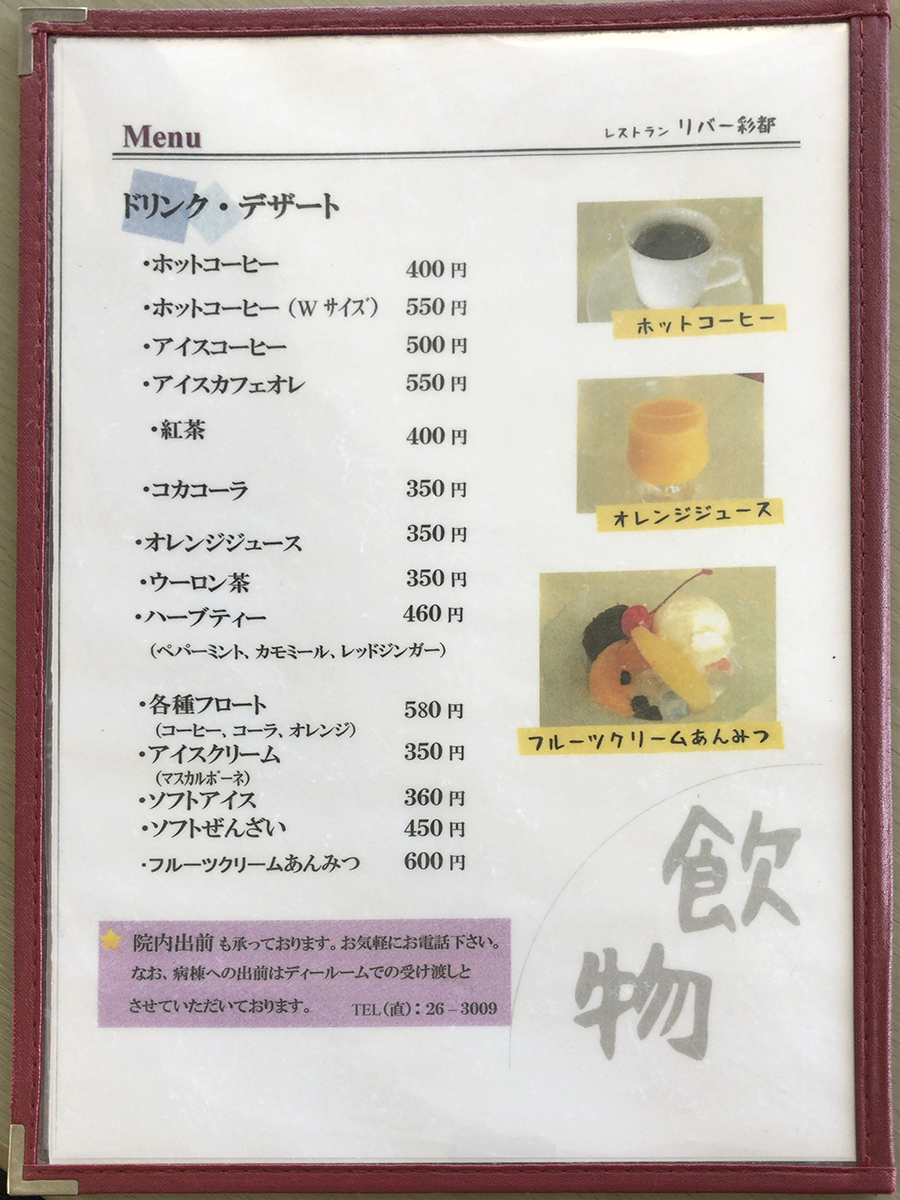 Menu
レストラン リバー彩都
ドリンク・デザート
・ホットコーヒー 400 円
・ホットコーヒー (W サイズ) 550 円
・アイスコーヒー 500 円
・アイスカフェオレ 550 円
・紅茶 400 円
・コカコーラ 350 円
・オレンジジュース 350 円
・ウーロン茶 350 円
・ハーブティー 460 円
(ペパーミント、カモミール、レッドジンガー)
・各種フロート 580 円
(コーヒー、コーラ、オレンジ)
・アイスクリーム 350 円
(マスカルポーネ)
・ソフトアイス 360 円
・ソフトぜんざい 450 円
・フルーツクリームあんみつ 600 円
ホットコーヒー
オレンジジュース
フルーツクリームあんみつ
飲
物
院内出前 も承っております。お気軽にお電話下さい。
なお、病棟への出前はディールームでの受け渡しと
させていただいております。 TEL(直):26－3009